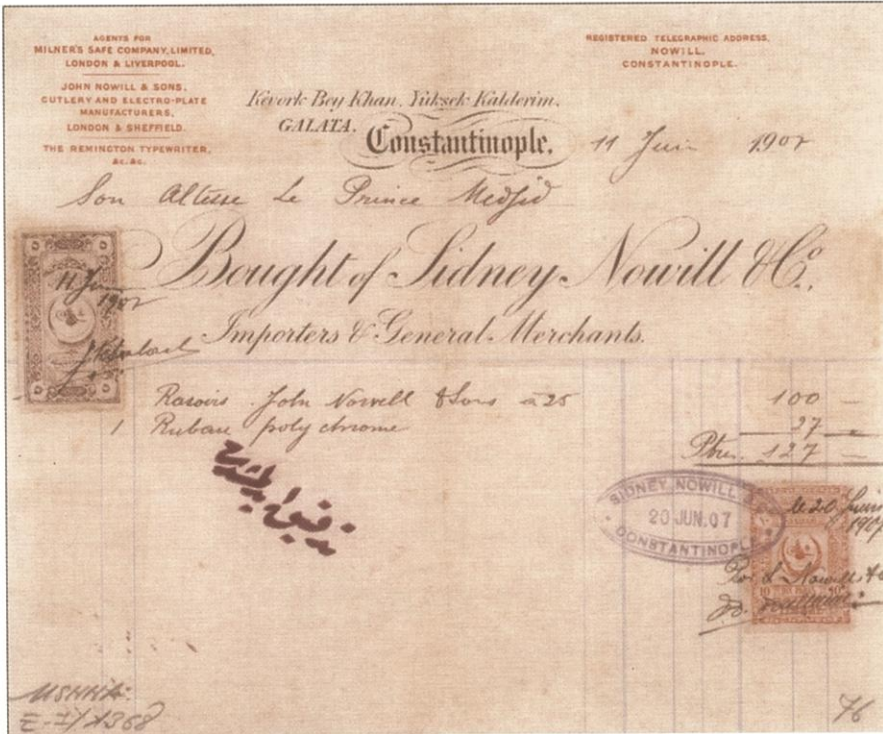 AGENTS FOR
MILNER'S SAFE COMPANY, LIMITED,
LONDON & LIVERPOOL.
JOHN NOWILL & SONS,
CUTLERY AND ELECTRO-PLATE
MANUFACTURERS,
LONDON & SHEFFIELD.
THE REMINGTON TYPEWRITER,
&c. &c.
REGISTERED TELEGRAPHIC ADDRESS,
NOWILL,
CONSTANTINOPLE.
Kevork Bey Khan, Yuksek Kalderim,
GALATA,
Constantinople, 11 Juin 1907
Son Altesse Le Prince Medjid
Bought of Sidney Nowill & Co.,
Importers & General Merchants.
11 Juin
1907
Rasoirs John Nowill & Sons à 25 100 —
1 Ruban polychrome 27 —
127 —
SIDNEY NOWILL &
20 JUN. 07
CONSTANTINOPLE
le 20 Juin
1907
Nowill &
10
E-I/1368
76